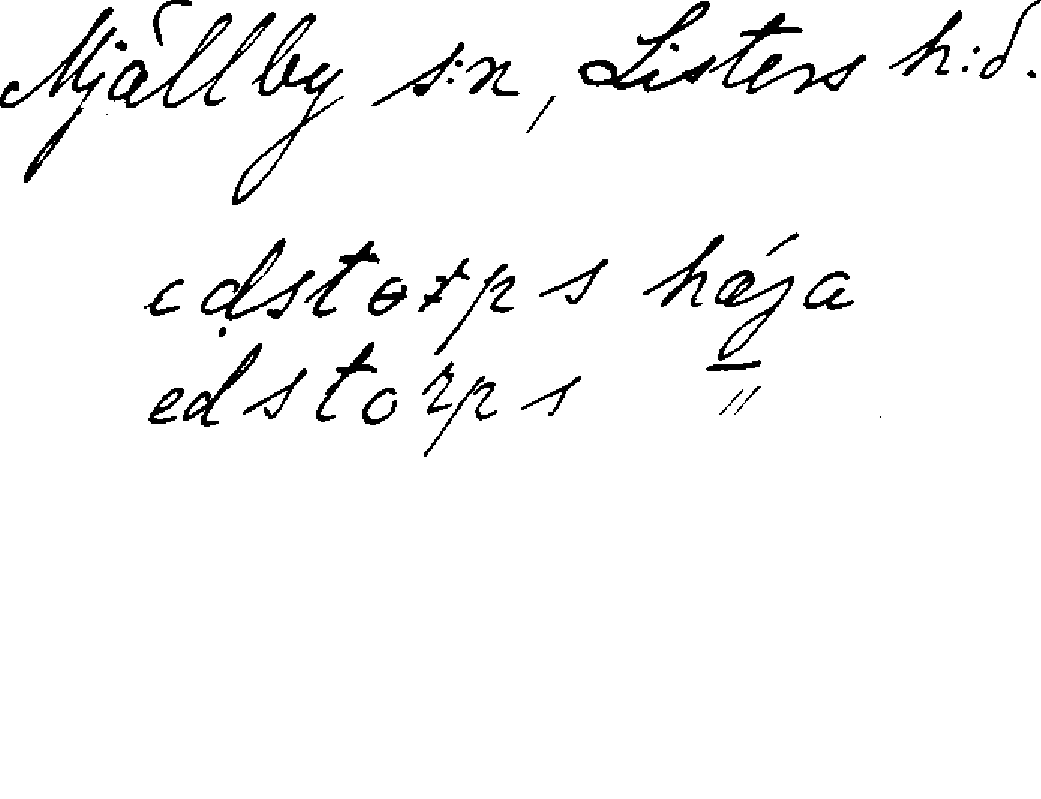 Mjällby s:n, Listers h:d.
edstorps hája
edstorps "